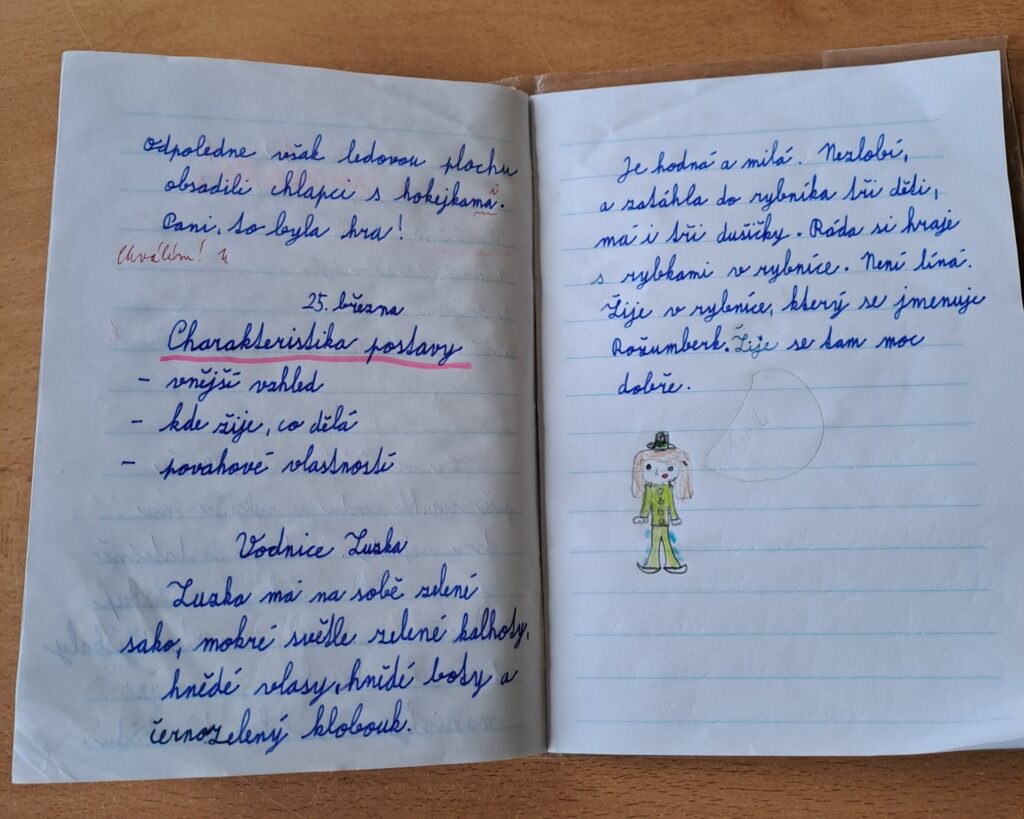 Odpoledne však ledovou plochu
obsadili chlapci s hokejkama.
Pani, to byla hra!
Chválím!
25. března
Charakteristika postavy
- vnější vzhled
- kde žije, co dělá
- povahové vlastností
Vodnice Luzka
Luzka má na sobě zelení
sako, mokré světle zelené kalhoty,
hnědé vlasy, hnědé boty a
černozelený klobouk.
Je hodná a milá. Nezlobí,
a zatáhla do rybníka tři děti,
má i tři dušičky. Ráda si hraje
s rybkami v rybníce. Není líná.
Žije v rybníce, který se jmenuje
Rožumberk. Žije se tam moc
dobře.